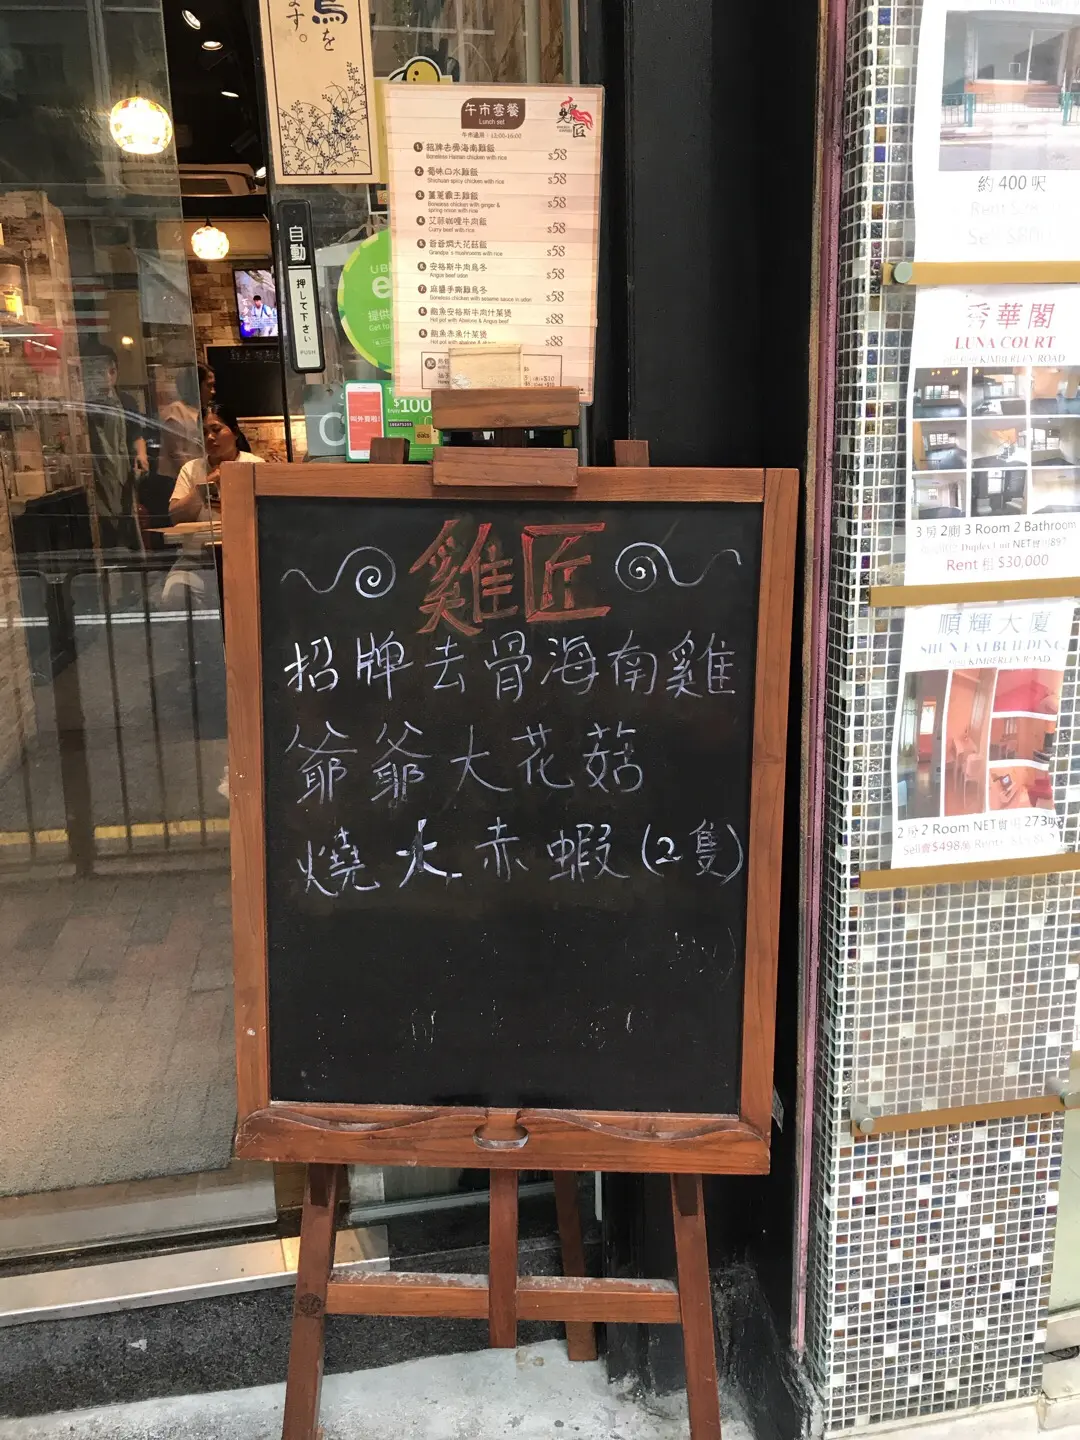 鳥を
ます。
午市套餐
Lunch set
午市適用：12:00-16:00
雞匠
1 招牌去骨海南雞飯 $58
Boneless Hainan chicken with rice
2 蜀味口水雞飯 $58
Shichuan spicy chicken with rice
3 薑蔥霸王雞飯 $58
Boneless chicken with ginger &
spring onion with rice
4 艾蒜咖喱牛肉飯 $58
Curry beef with rice
5 爺爺燜大花菇飯 $58
Grandpa's mushrooms with rice
6 安格斯牛肉烏冬 $58
Angus beef udon
7 麻醬手撕雞烏冬 $58
Boneless chicken with sesame sauce in udon
8 鮑魚安格斯牛肉什菜煲 $88
Hot pot with Abalone & Angus beef
9 鮑魚赤魚什菜煲 $88
自動
押して下さい
PUSH
UB
e
提供
Get fo
叫外賣啦!
$100
eats
雞匠
招牌去骨海南雞
爺爺大花菇
燒大赤蝦(2隻)
約 400 呎
秀華閣
LUNA COURT
KIMBERLEY ROAD
3 房 2廁 3 Room 2 Bathroom
Duplex Unit NET實用897
Rent 租 $30,000
順輝大廈
SHUN FAI BUILDING
KIMBERLEY ROAD
2 房 2 Room NET實用 273呎
Sell賣$498萬